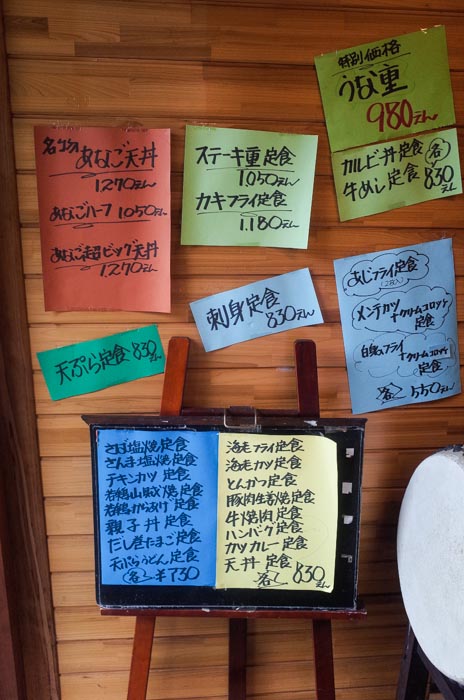 名物
あなご天丼
1270えん
あなごハーフ 1050えん
あなご超ビッグ天丼
1,270えん
ステーキ重定食
1,050えん
カキフライ定食
1,180えん
特別価格
うな重
980えん
カルビ丼定食
牛めし定食
各
830えん
天ぷら定食 830えん
刺身定食
830えん
あじフライ定食
メンチカツ
+クリームコロッケ
定食
白身フライ
+クリームコロッケ
定食
各〻 550えん
さば塩焼定食
さんま塩焼定食
チキンカツ定食
若鶏山賊焼定食
若鶏からあげ定食
親子丼定食
だし巻たまご定食
天ぷらうどん定食
各〻 ¥730
海老フライ定食
海老カツ定食
とんかつ定食
豚肉生姜焼定食
牛焼肉定食
ハンバーグ定食
カツカレー定食
天丼定食
各〻 830えん